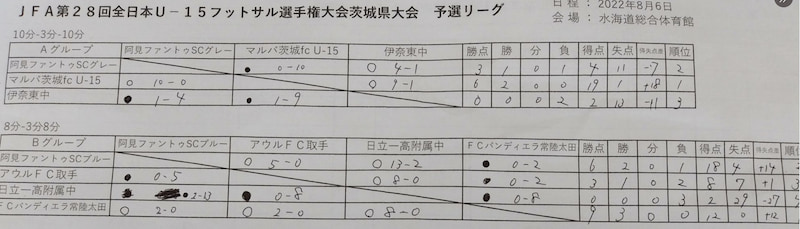 JFA第28回全日本U-15フットサル選手権大会茨城県大会 予選リーグ
日程:2022年8月6日
会場:水海道総合体育館
10分-3分-10分
Aグループ 阿見ファントゥSCグレー マルバ茨城fc U-15 伊奈東中 勝点 勝 分 負 得点 失点 得失点差 順位
阿見ファントゥSCグレー ● 0-10 ○ 4-1 3 1 0 1 4 11 -7 2
マルバ茨城fc U-15 ○ 10-0 ○ 9-1 6 2 0 0 19 1 +18 1
伊奈東中 ● 1-4 ● 1-9 0 0 0 2 2 13 -11 3
8分-3分8分
Bグループ 阿見ファントゥSCブルー アウルFC取手 日立一高附属中 FCバンディエラ常陸太田 勝点 勝 分 負 得点 失点 得失点差 順位
阿見ファントゥSCブルー ○ 5-0 ○ 13-2 ● 0-2 6 2 0 1 18 4 +14 2
アウルFC取手 ● 0-5 ○ 8-0 ● 0-2 3 1 0 2 8 7 +1 3
日立一高附属中 ● 2-13 ● 0-8 ● 0-8 0 0 0 3 2 29 -27
FCバンディエラ常陸太田 ○ 2-0 ○ 2-0 ○ 8-0 9 3 0 0 12 0 +12